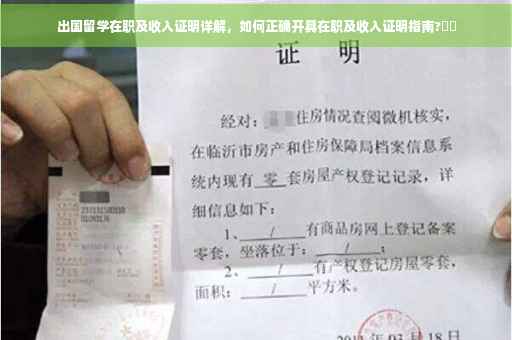 出国留学在职及收入证明详解，如何正确开具在职及收入证明指南?
证 明
经对：住房情况查阅微机核实，
在临沂市房产和住房保障局档案信息系
统内现有 零 套房屋产权登记记录，详
细信息如下：
1、 / 有商品房网上登记备案
零套，坐落位于： / ；
2、 / 有产权登记房屋零套，
面积： / 平方米。
03月18日